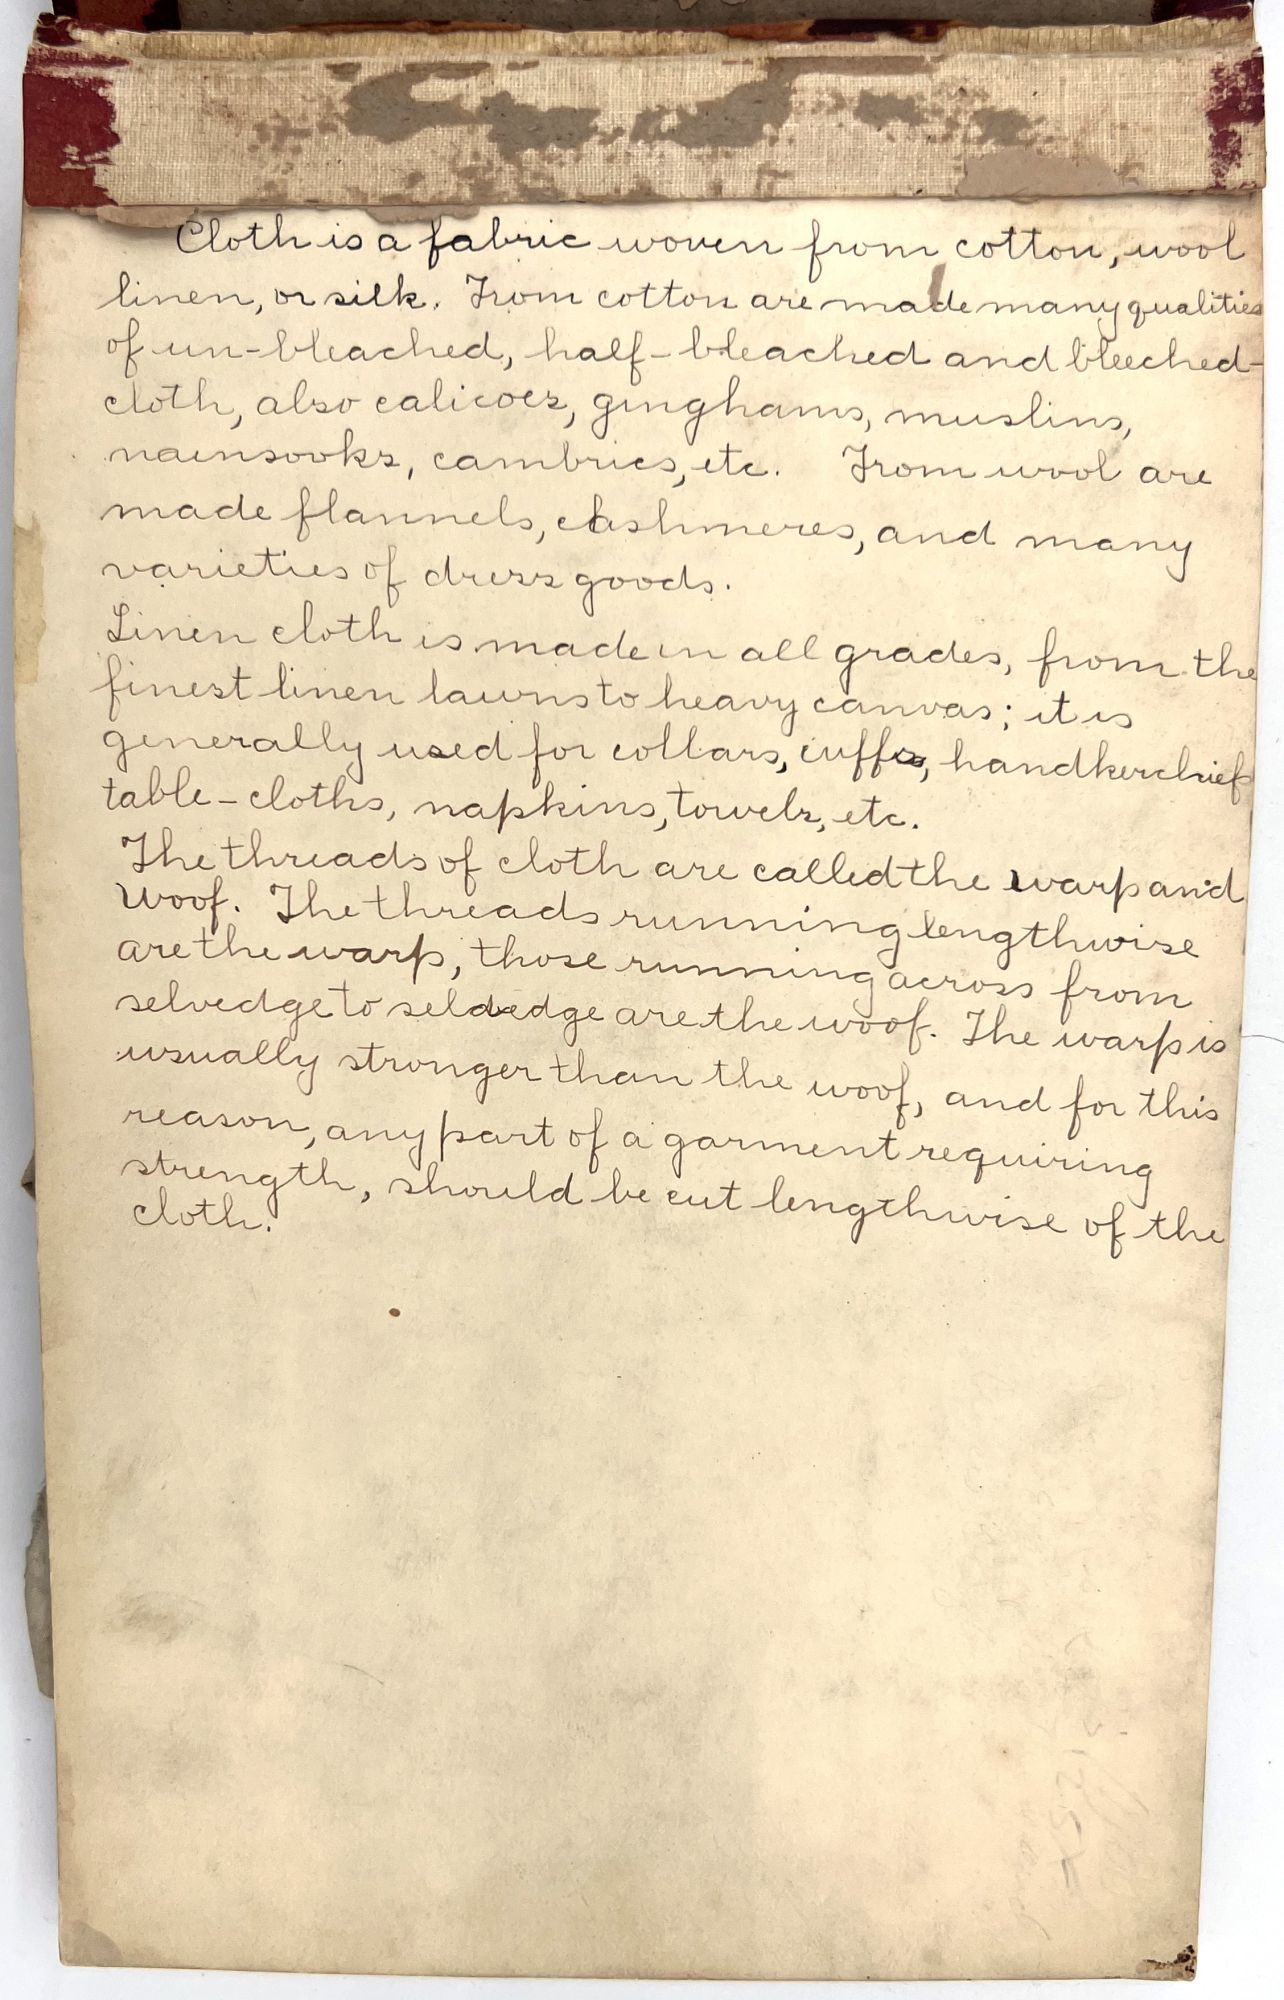 Cloth is a fabric woven from cotton, wool
linen, or silk. From cotton are made many qualities
of un-bleached, half-bleached and bleeched-
cloth, also calicoes, ginghams, muslins,
nainsooks, cambrics, etc. From wool are
made flannels, cashmeres, and many
varieties of dress goods.
Linen cloth is made in all grades, from the
finest linen lawns to heavy canvas; it is
generally used for collars, cuffs, handkerchiefs
table-cloths, napkins, towels, etc.
The threads of cloth are called the warp and
woof. The threads running lengthwise
are the warp, those running across from
selvedge to selvedge are the woof. The warp is
usually stronger than the woof, and for this
reason, any part of a garment requiring
strength, should be cut lengthwise of the
cloth.